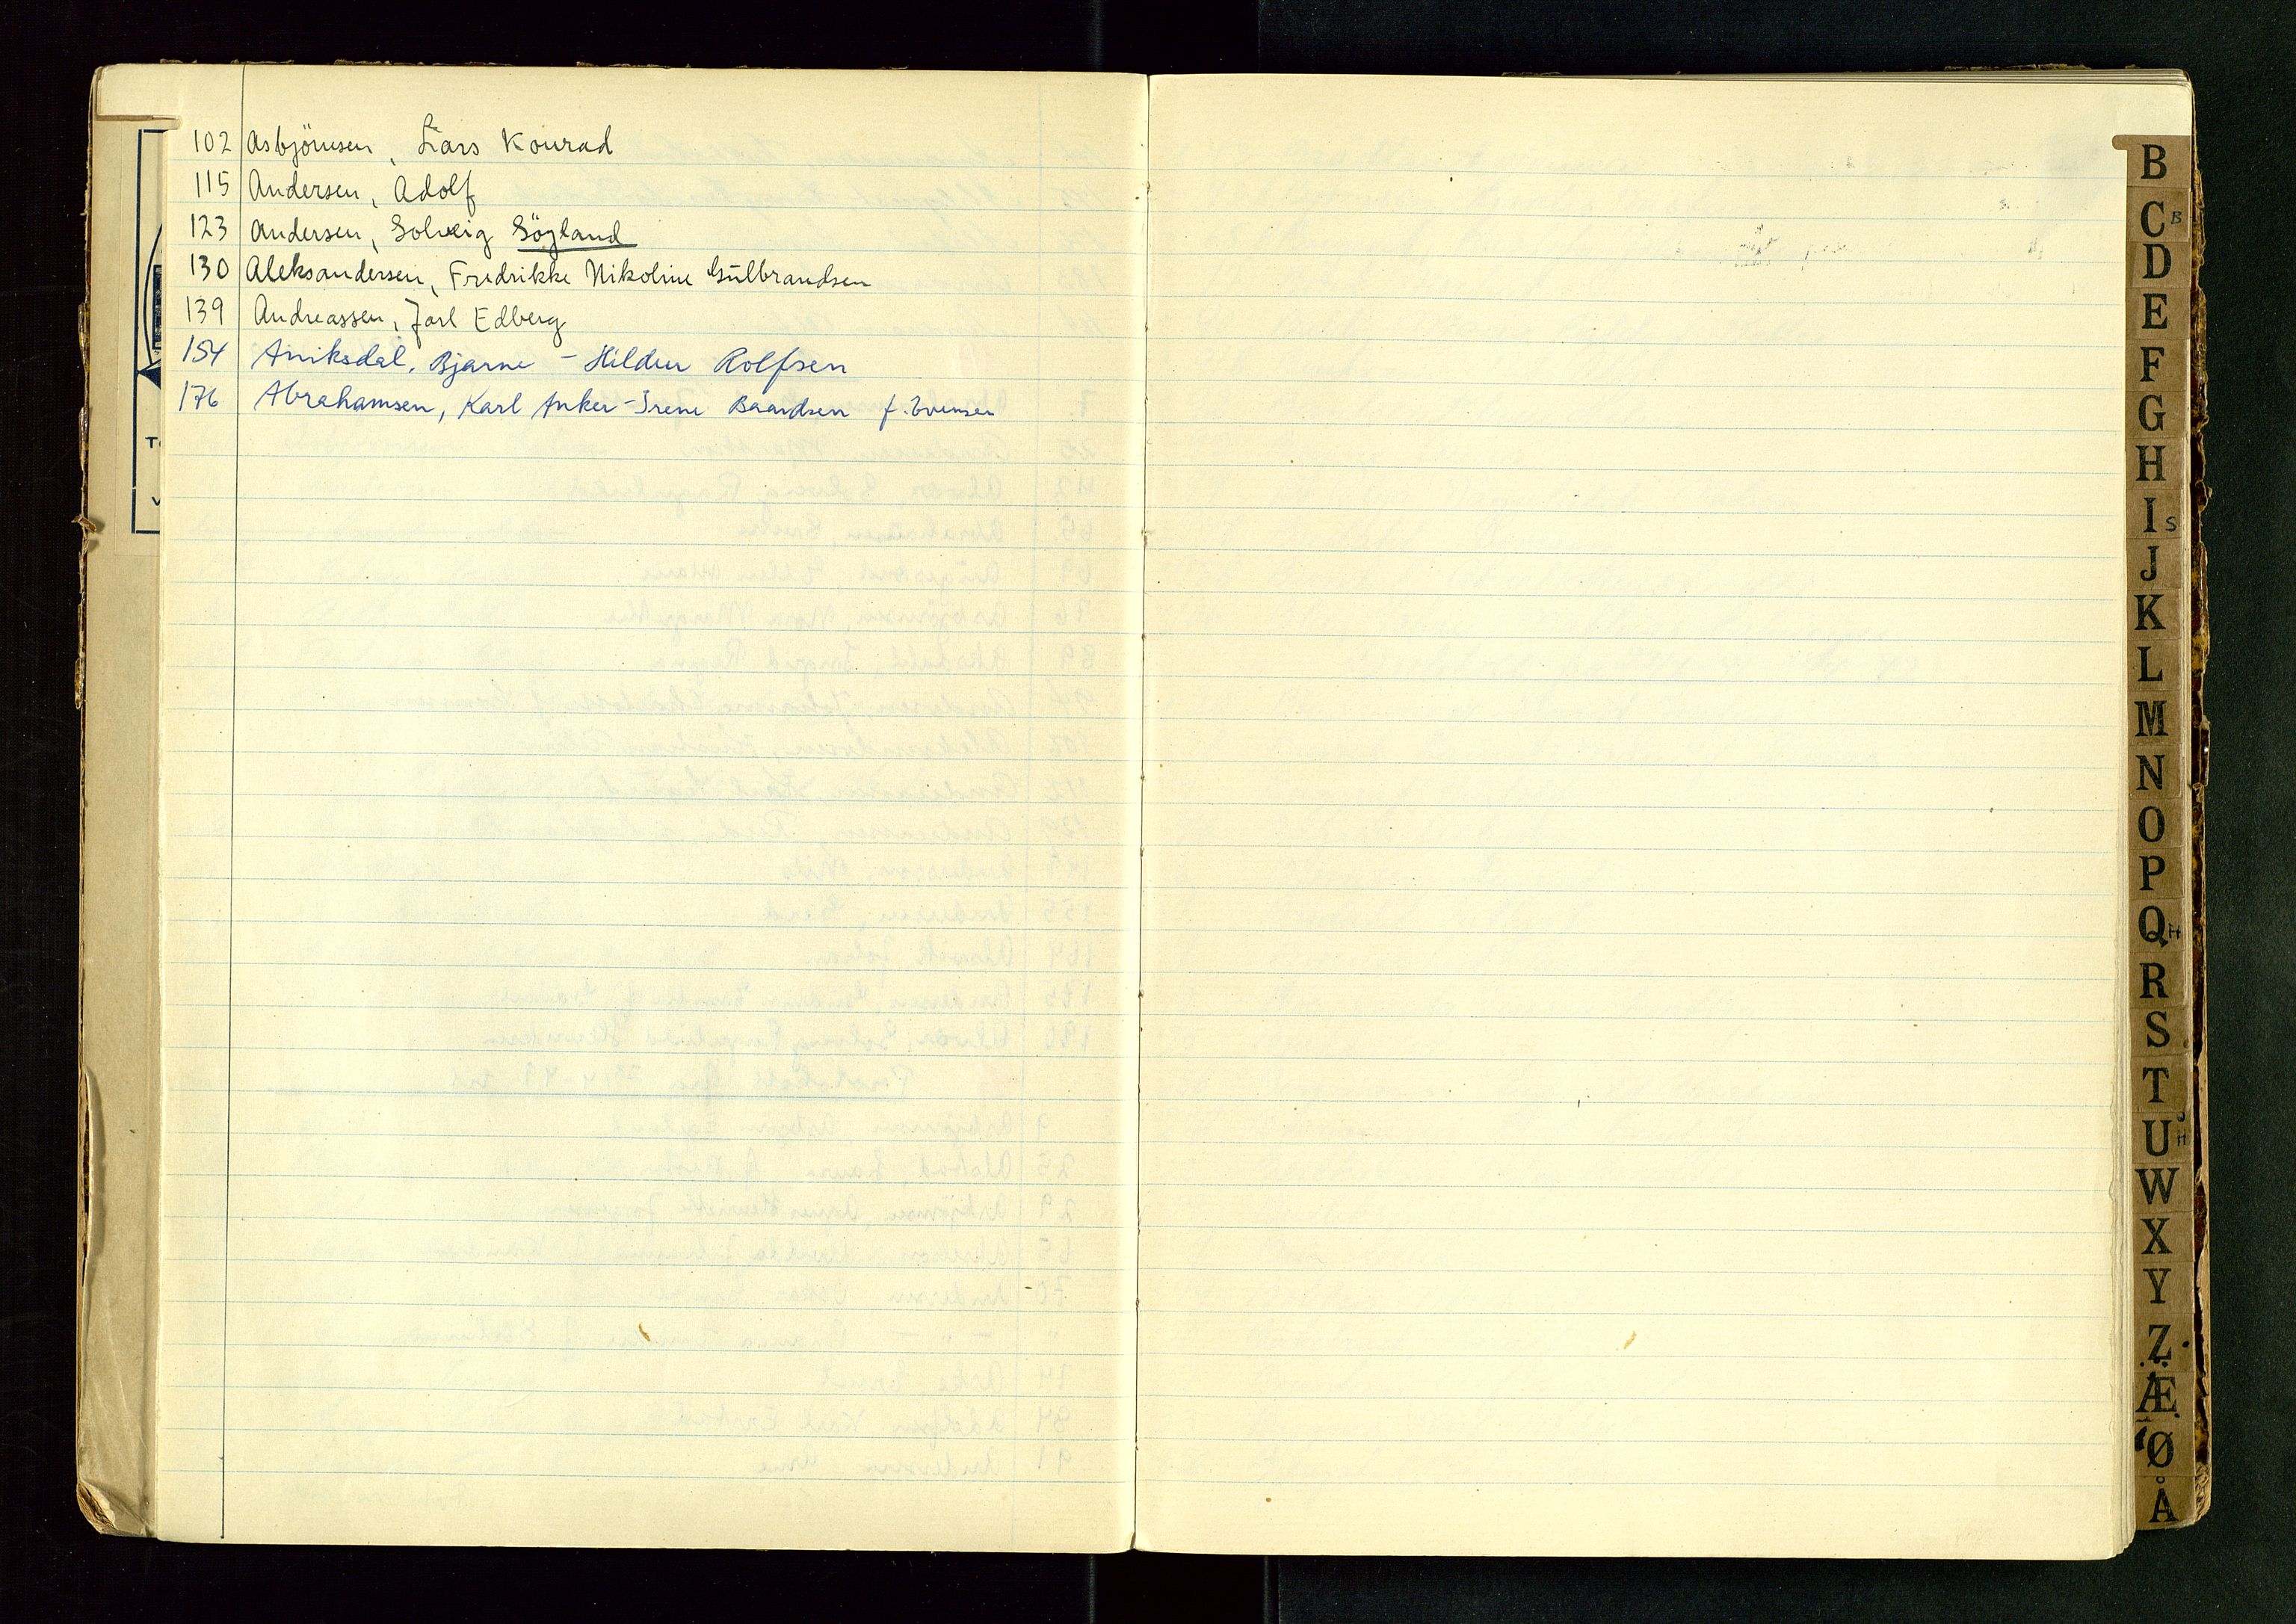 102 Asbjörnsen, Lars Konrad
115 Andersen, Adolf
123 Andersen, Solveig Sögland
130 Aleksandersen, Fredrikke Nikoline Gulbrandsen
139 Andreassen, Jarl Edberg
154 Aniksdal, Bjarne - Hildur Rolfsen
176 Abrahamsen, Karl Anker - Irene Baardsen f. Evensen
B
C B
D
E
F
G
H
I S
J
K
L
M
N
O
P
Q H
R
S
T
U H
W
X
Y
Z
Æ
Ø
Å